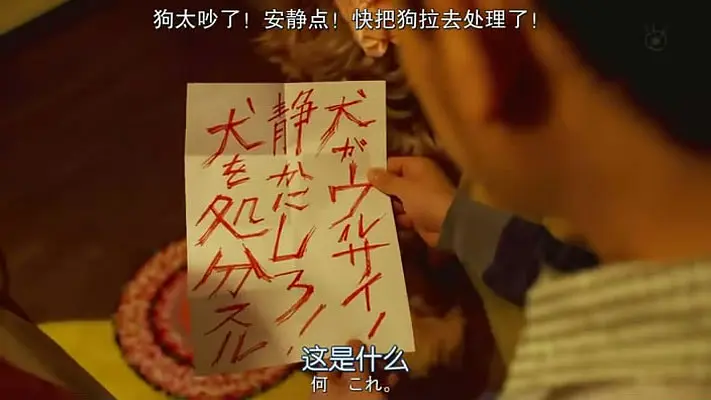 狗太吵了！安静点！快把狗拉去处理了！
犬がウルサイ！
静かにしろ！！
犬を処分スル
这是什么
何　これ。